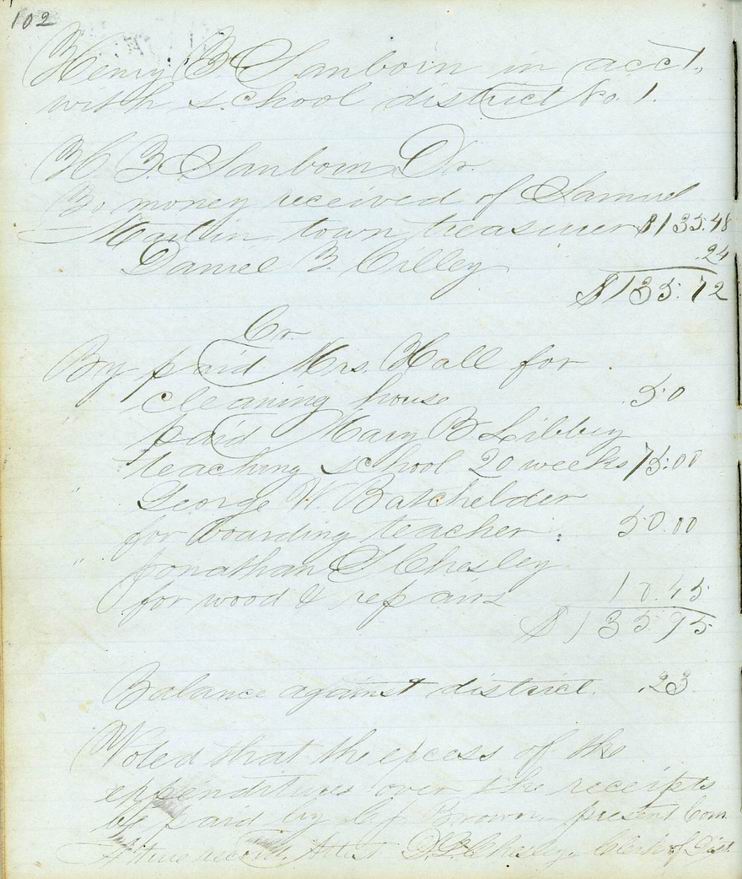 102
Henry B. Sanborn in acct.
with school district No. 1.
H B Sanborn Dr.
To money received of Samuel
town treasurer $135.48
Daniel B. Cilley .24
$135.72
Cr.
By paid Mrs. Hall for
cleaning house .50
" paid Mary B Libbey
teaching school 20 weeks 75.00
" George W. Batchelder
for boarding teacher 50.00
" Jonathan Chesley
for wood & repairs 10.45
$135.95
Balance against district .23
Voted that the excess of the
expenditures over the receipts
be paid by Brown present Com
A true record. Attest Chesley Clerk of Dist.